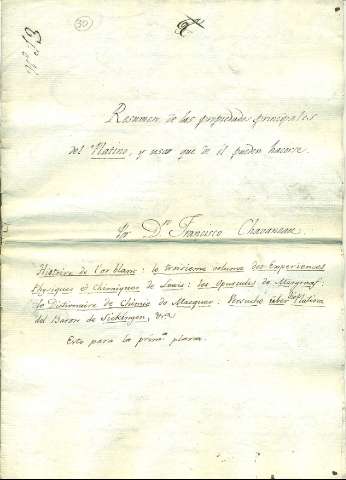 Nº 13
30
Resumen de las propiedades principales
del Platino, y usos que de el pueden hacerse.
Por Dn Francisco Chavaneau
Histoire de l'or blanc: le troisieme volume des Experiences
Physiques & Chimiques de Lewis: les Opuscules de Margraaf:
le Dictionaire de Chimie de Macquer: Versuche über die Platina
del Baron de Sickingen,
Esto para la prima plana.